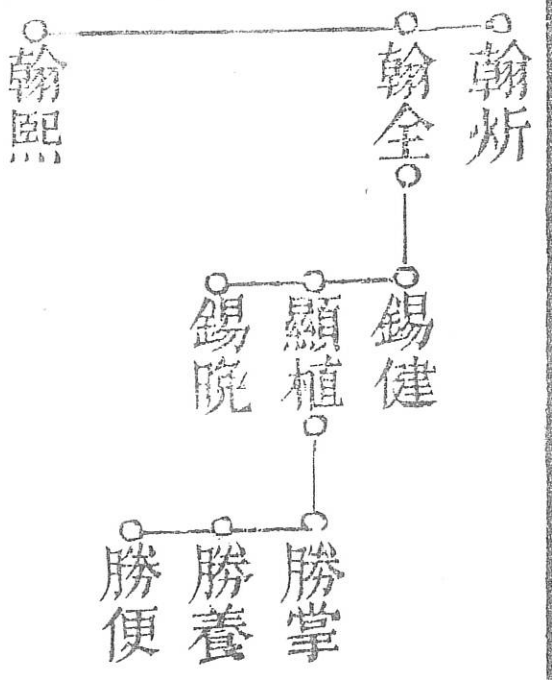 翰炘
翰全
翰熙
錫健
顯植
錫晥
勝掌
勝養
勝便